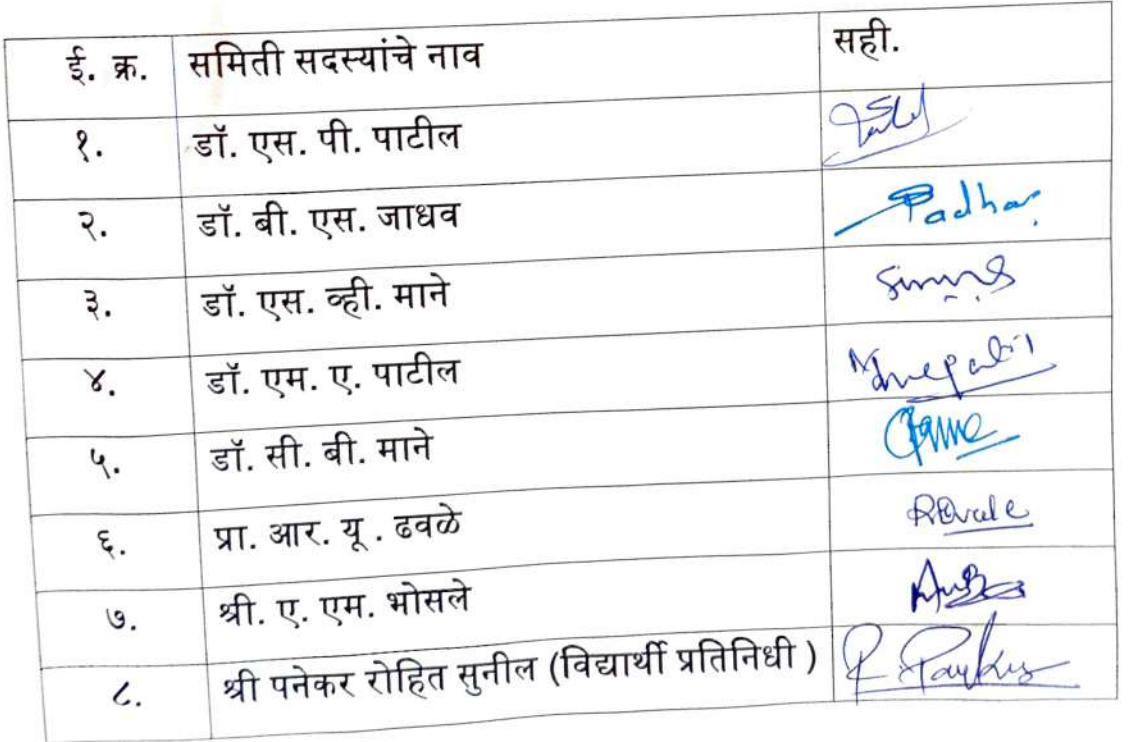 ई. क्र. समिती सदस्यांचे नाव सही.
१. डॉ. एस. पी. पाटील
२. डॉ. बी. एस. जाधव
३. डॉ. एस. व्ही. माने
४. डॉ. एम. ए. पाटील
५. डॉ. सी. बी. माने
६. प्रा. आर. यू . ढवळे
७. श्री. ए. एम. भोसले
८. श्री पनेकर रोहित सुनील (विद्यार्थी प्रतिनिधी )